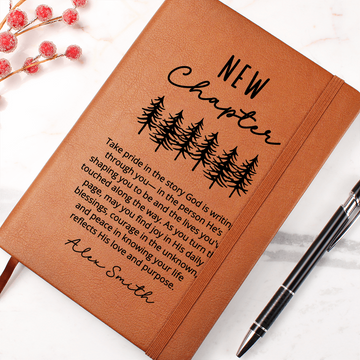 NEW
Chapter
Take pride in the story God is writing
through you— in the person He's
shaping you to be and the lives you'v
touched along the way. As you turn th
page, may you find joy in His daily
blessings, courage in the unknown,
and peace in knowing your life
reflects His love and purpose.
Alex Smith